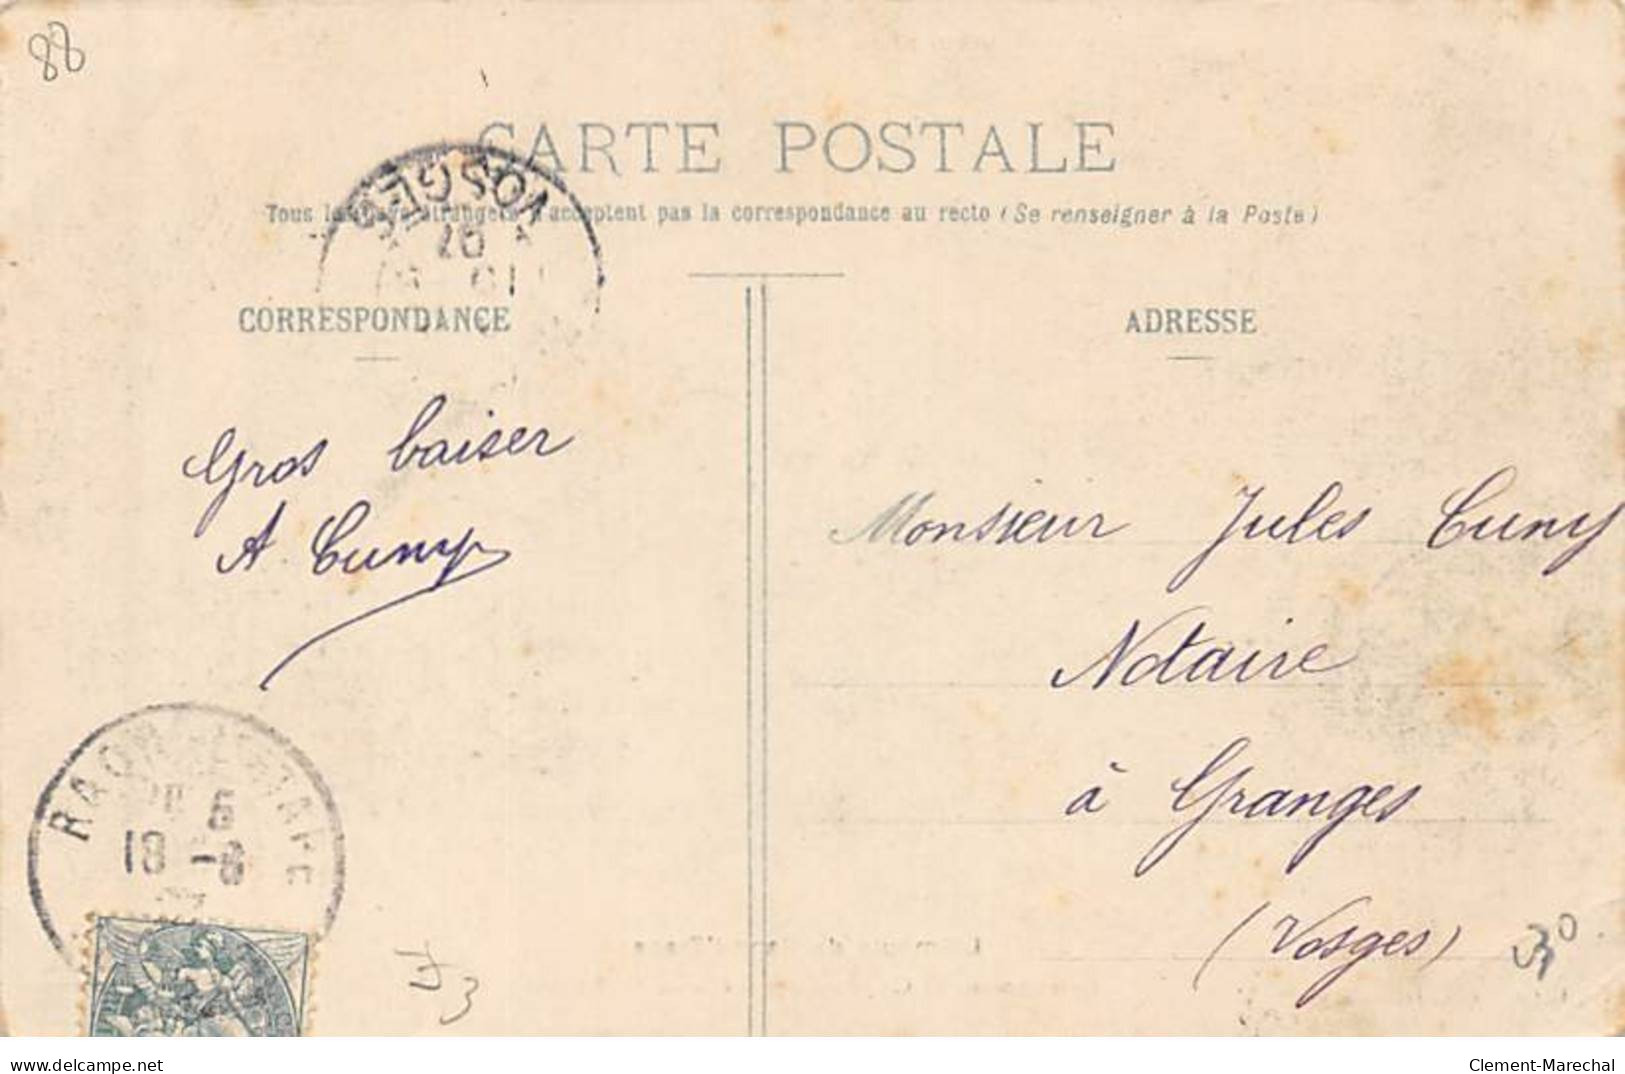 88
CARTE POSTALE
Tous les pays étrangers n'acceptent pas la correspondance au recto (Se renseigner à la Poste)
VOSGES
07
CORRESPONDANCE
ADRESSE
Gros baiser
A. Cuny
Monsieur Jules Cuny
Notaire
à Granges
(Vosges)
RAON-L'ETAPE
5
18 -8
30
www.delcampe.net
Clement-Marechal